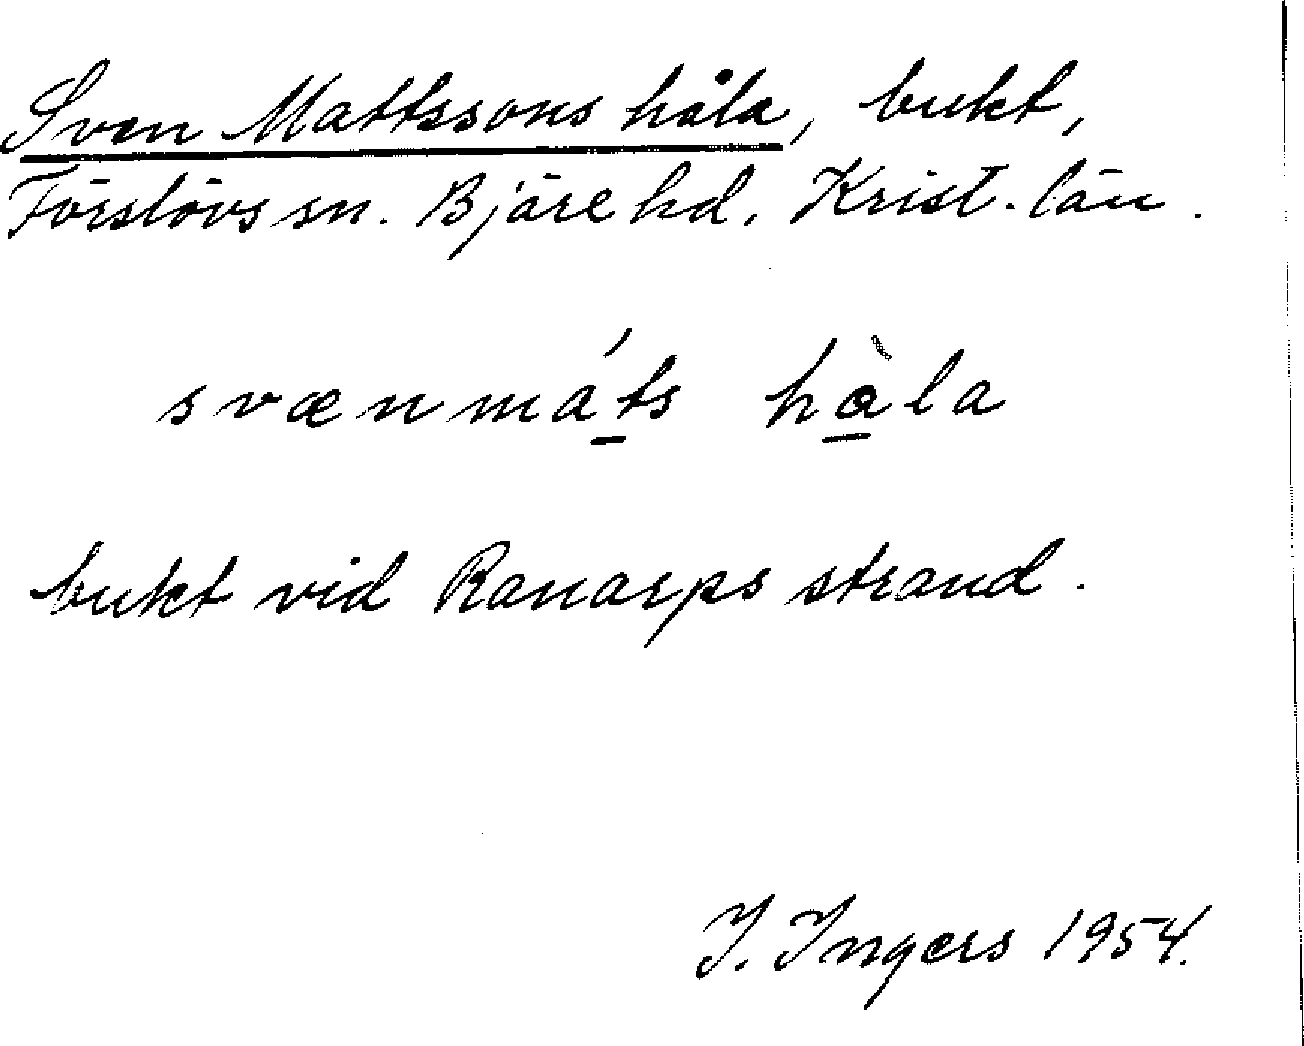 Sven Mattssons håla, bukt,
Förslövs sn. Bjäre hd. Krist. län.
svænmá̱ts hà̱la
bukt vid Ranarps strand.
I. Ingers 1954.